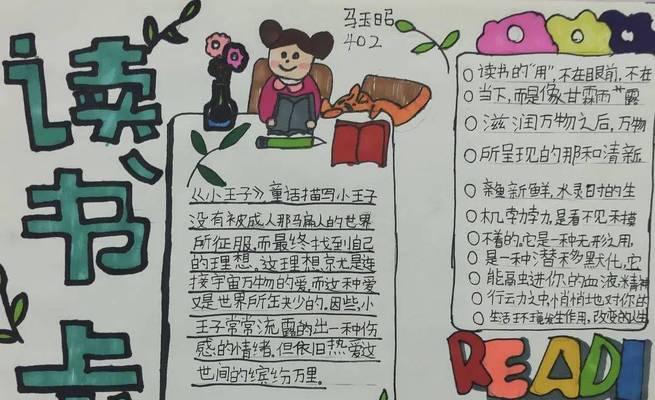 读书卡
马玉昭
402
《小王子》童话描写小王子
没有被成人那骗人的世界
所征服,而最终找到自己
的理想。这理想就是连
接宇宙万物的爱,而这种爱
又是世界所缺少的。因些,小
王子常常流露的出一种伤
感的情绪,但依旧热爱这
世间的缤纷万里。
读书的“用”,不在眼前,不在
当下,而是像甘霖雨露
滋润万物之后,万物
所呈现的那和清新
新鲜,水灵时的生
机勃勃,是看不见和摸
不着的,它是一种无形之用,
是一种潜移默化,它
能高虫进你的血液精神
行云力之中,悄悄地对你的
生活环境发生作用,改变的人生
READI